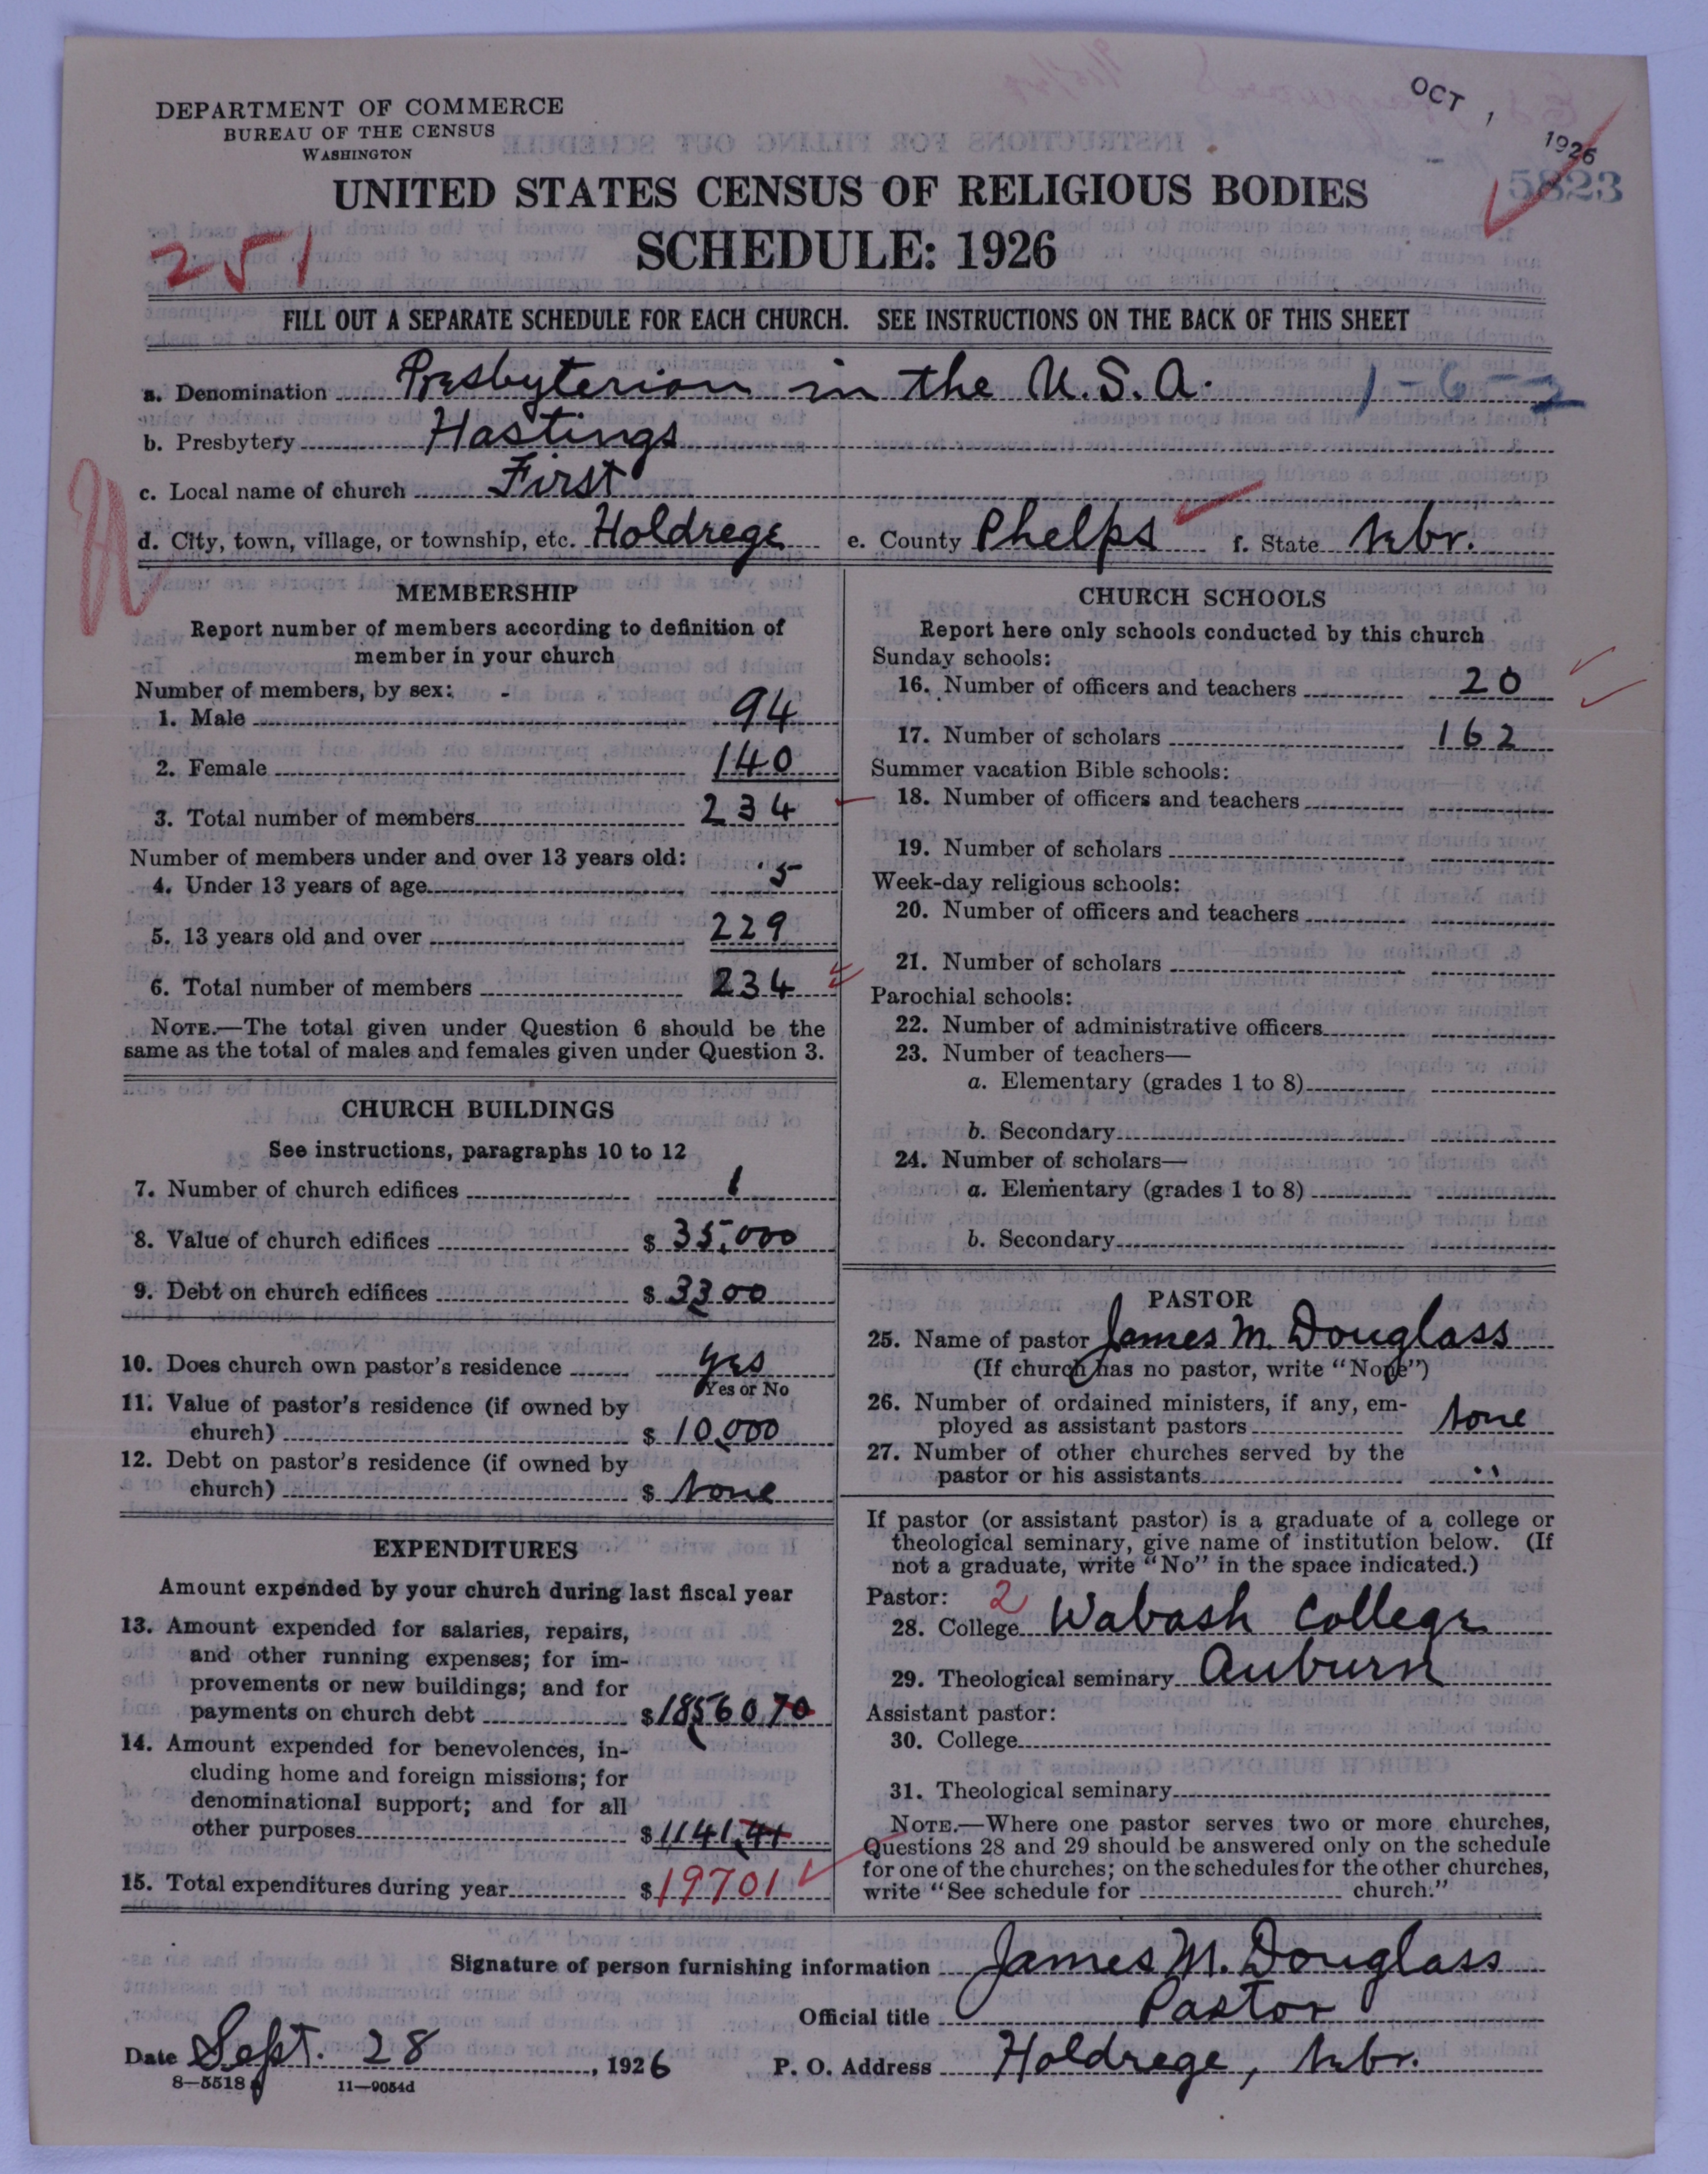 OCT 1 1926
5823
DEPARTMENT OF COMMERCE
BUREAU OF THE CENSUS
WASHINGTON
UNITED STATES CENSUS OF RELIGIOUS BODIES
SCHEDULE: 1926
251
FILL OUT A SEPARATE SCHEDULE FOR EACH CHURCH. SEE INSTRUCTIONS ON THE BACK OF THIS SHEET
a. Denomination Presbyterian in the U.S.A. 1-6-2
b. Presbytery Hastings
c. Local name of church First
d. City, town, village, or township, etc. Holdrege e. County Phelps f. State Nebr.
MEMBERSHIP
Report number of members according to definition of
member in your church
Number of members, by sex:
1. Male 94
2. Female 140
3. Total number of members 234
Number of members under and over 13 years old:
4. Under 13 years of age 5
5. 13 years old and over 229
6. Total number of members 234
NOTE.—The total given under Question 6 should be the
same as the total of males and females given under Question 3.
CHURCH BUILDINGS
See instructions, paragraphs 10 to 12
7. Number of church edifices 1
8. Value of church edifices $ 35,000
9. Debt on church edifices $ 3300
10. Does church own pastor's residence yes
Yes or No
11. Value of pastor's residence (if owned by
church) $ 10,000
12. Debt on pastor's residence (if owned by
church) $ None
EXPENDITURES
Amount expended by your church during last fiscal year
13. Amount expended for salaries, repairs,
and other running expenses; for im-
provements or new buildings; and for
payments on church debt $ 18560.70
14. Amount expended for benevolences, in-
cluding home and foreign missions; for
denominational support; and for all
other purposes $ 1141.41
15. Total expenditures during year $ 19701
CHURCH SCHOOLS
Report here only schools conducted by this church
Sunday schools:
16. Number of officers and teachers 20
17. Number of scholars 162
Summer vacation Bible schools:
18. Number of officers and teachers
19. Number of scholars
Week-day religious schools:
20. Number of officers and teachers
21. Number of scholars
Parochial schools:
22. Number of administrative officers
23. Number of teachers—
a. Elementary (grades 1 to 8)
b. Secondary
24. Number of scholars—
a. Elementary (grades 1 to 8)
b. Secondary
PASTOR
25. Name of pastor James M. Douglass
(If church has no pastor, write "None")
26. Number of ordained ministers, if any, em-
ployed as assistant pastors None
27. Number of other churches served by the
pastor or his assistants "
If pastor (or assistant pastor) is a graduate of a college or
theological seminary, give name of institution below. (If
not a graduate, write "No" in the space indicated.)
Pastor: 2
28. College Wabash College
29. Theological seminary Auburn
Assistant pastor:
30. College
31. Theological seminary
NOTE.—Where one pastor serves two or more churches,
Questions 28 and 29 should be answered only on the schedule
for one of the churches; on the schedules for the other churches,
write "See schedule for church."
Signature of person furnishing information James M. Douglass
Official title Pastor
Date Sept. 28, 1926 P. O. Address Holdrege, Nebr.
8—5518 11—9054d